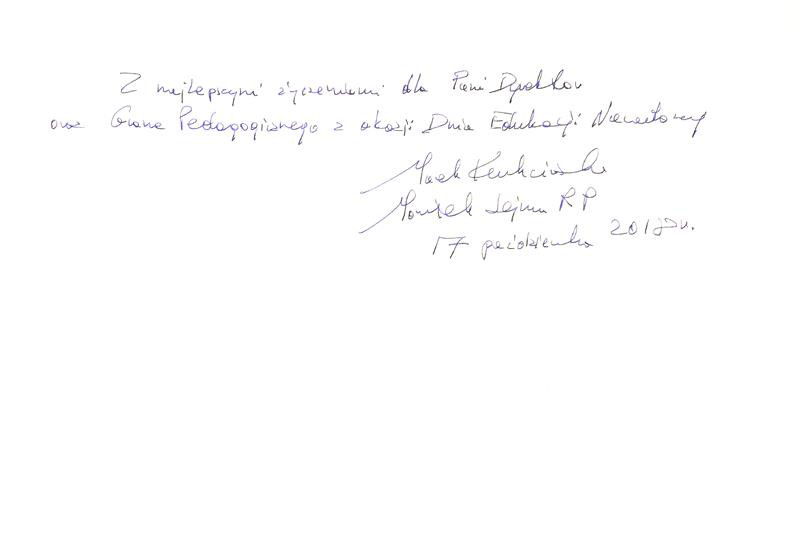 Z najlepszymi życzeniami dla Pani Dyrektor
oraz Grona Pedagogicznego z okazji Dnia Edukacji Narodowej
Marek Kuchciński
Marszałek Sejmu RP
17 października 2017 r.